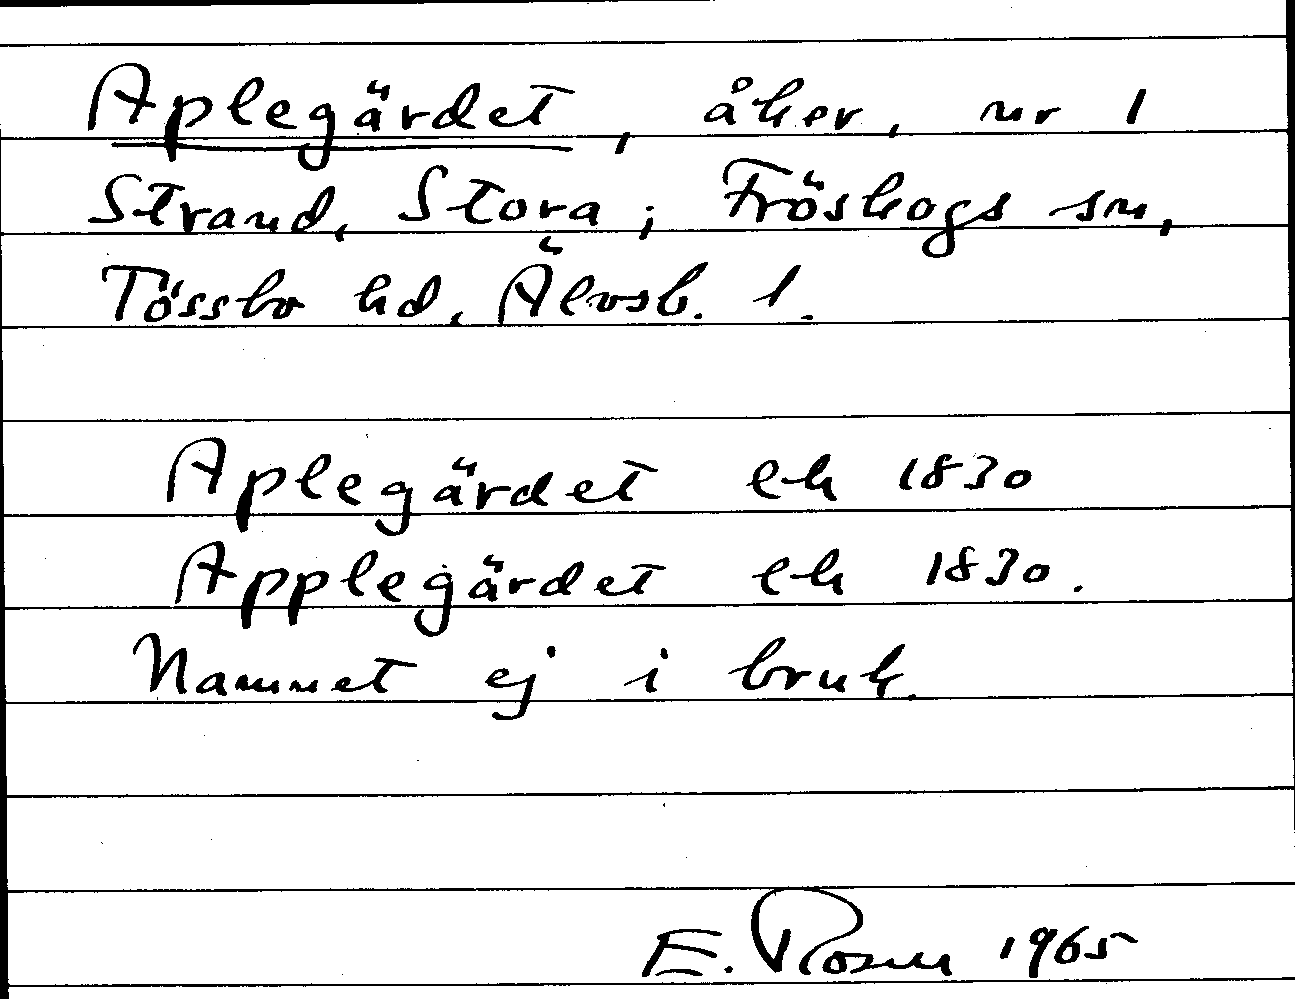 Aplegärdet, åker, nr 1
Strand, Stora; Fröskogs sn,
Tössbo hd, Älvsb. l.
Aplegärdet ek 1830
Applegärdet ek 1830.
Namnet ej i bruk.
E. Rosen 1965